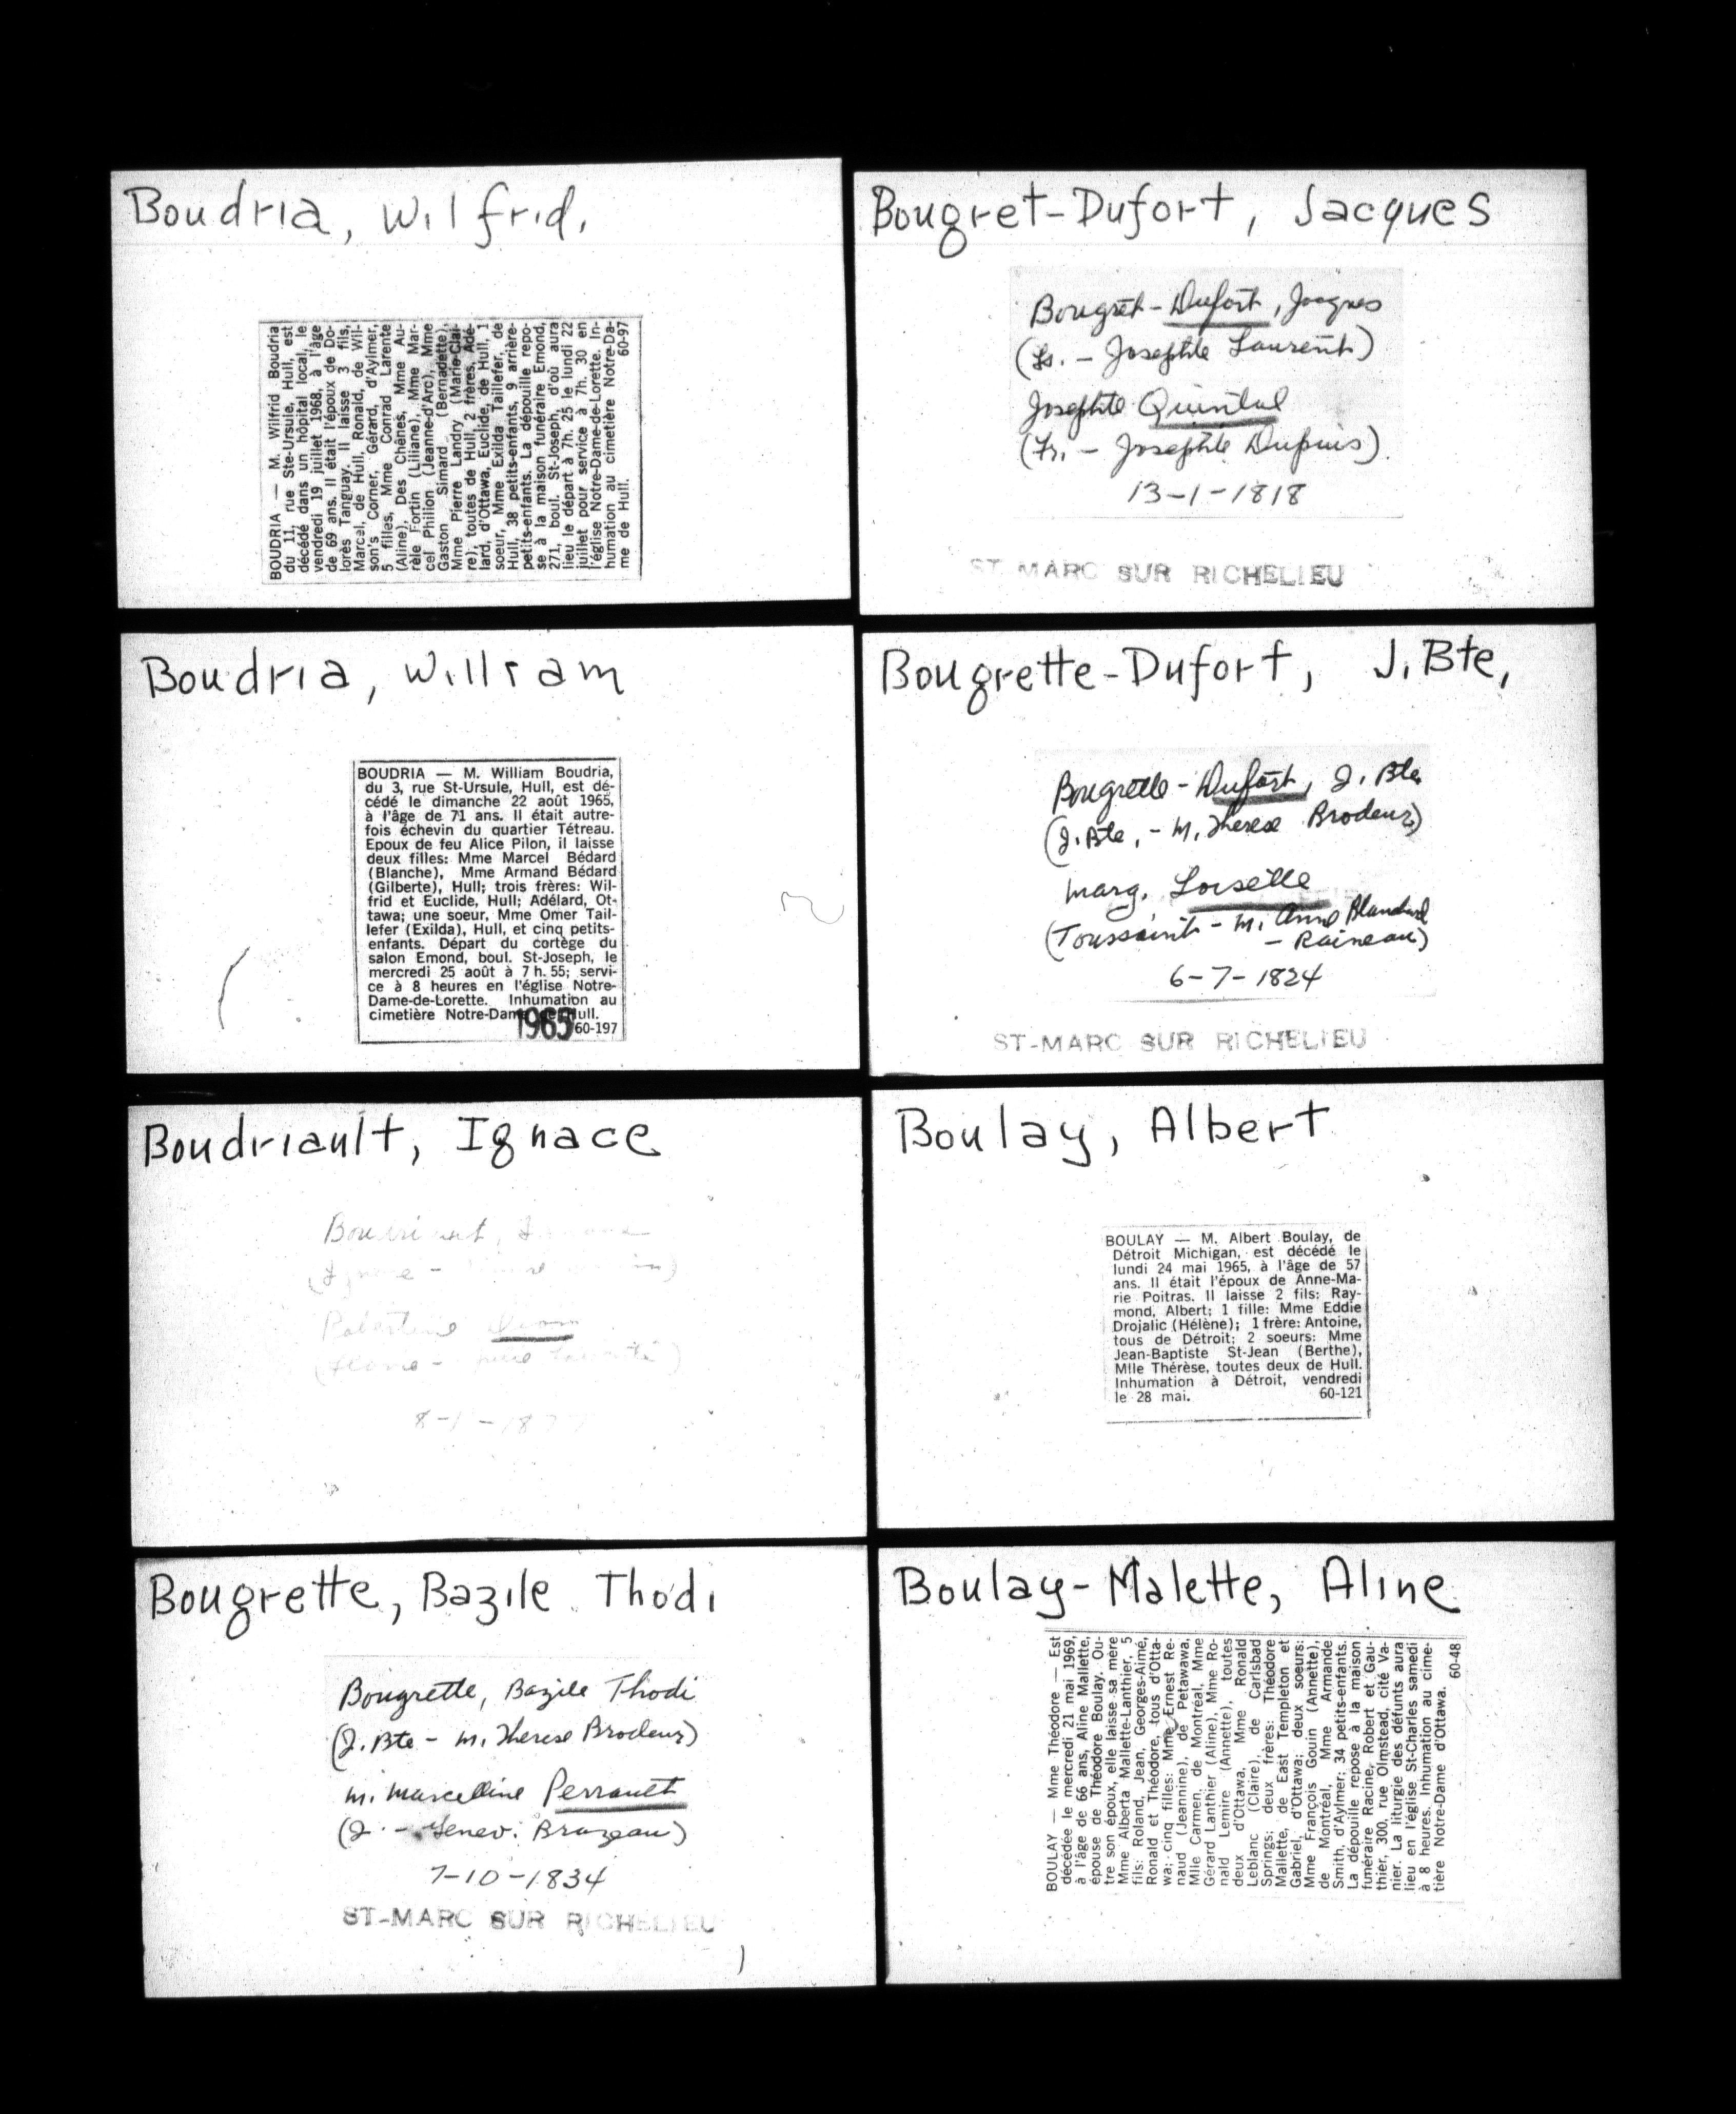 Boudria, Wilfrid.
BOUDRIA — M. Wilfrid Boudria
du 11, rue Ste-Ursule, Hull, est
décédé dans un hôpital local, le
vendredi 19 juillet 1968, à l'âge
de 69 ans. Il était l'époux de Do-
lorès Tanguay. Il laisse 3 fils,
Marcel, de Hull, Ronald, de Wil-
son's Corner, Gérard, d'Aylmer,
5 filles, Mme Conrad Larente
(Aline), Des Chênes, Mme Au-
rèle Fortin (Liliane), Mme Mar-
cel Philion (Jeanne-d'Arc), Mme
Gaston Simard (Bernadette),
Mme Pierre Landry (Marie-Clai-
re), toutes de Hull, 2 frères, Adé-
lard, d'Ottawa, Euclide, de Hull, 1
soeur, Mme Exilda Taillefer, de
Hull, 38 petits-enfants, 9 arrière-
petits-enfants. La dépouille repo-
se à la maison funéraire Emond,
271, boul. St-Joseph, d'où aura
lieu le départ à 7h. 25 le lundi 22
juillet pour service à 7h. 30 en
l'église Notre-Dame-de-Lorette. In-
humation au cimetière Notre-Da-
me de Hull. 60-97
Bougret-Dufort, Jacques
Bougret-Dufort, Jacques
(Ls. - Josephte Laurent)
Josephte Quintal
(Fr. - Josephte Dupuis).
13-1-1818
ST-MARC SUR RICHELIEU
Boudria, William
BOUDRIA — M. William Boudria,
du 3, rue St-Ursule, Hull, est dé-
cédé le dimanche 22 août 1965,
à l'âge de 71 ans. Il était autre-
fois échevin du quartier Tétreau.
Epoux de feu Alice Pilon, il laisse
deux filles: Mme Marcel Bédard
(Blanche), Mme Armand Bédard
(Gilberte), Hull; trois frères: Wil-
frid et Euclide, Hull; Adélard, Ot-
tawa; une soeur, Mme Omer Tail-
lefer (Exilda), Hull, et cinq petits-
enfants. Départ du cortège du
salon Emond, boul. St-Joseph, le
mercredi 25 août à 7 h. 55; servi-
ce à 8 heures en l'église Notre-
Dame-de-Lorette. Inhumation au
cimetière Notre-Dame de Hull.
1965 60-197
Bougrette-Dufort, J. Bte,
Bougrette-Dufort, J. Bte
(J. Bte, - M. Therese Brodeur)
Marg. Loiselle
(Toussaint - M. Anne Blanchard
- Raineau)
6-7-1824
ST-MARC SUR RICHELIEU
Boudriault, Ignace
8-1-18
Boulay, Albert
BOULAY — M. Albert Boulay, de
Détroit Michigan, est décédé le
lundi 24 mai 1965, à l'âge de 57
ans. Il était l'époux de Anne-Ma-
rie Poitras. Il laisse 2 fils: Ray-
mond, Albert; 1 fille: Mme Eddie
Drojalic (Hélène); 1 frère: Antoine,
tous de Détroit; 2 soeurs: Mme
Jean-Baptiste St-Jean (Berthe),
Mlle Thérèse, toutes deux de Hull.
Inhumation à Détroit, vendredi
le 28 mai. 60-121
Bougrette, Bazile Thodi
Bougrette, Bazile Thodi
(J. Bte - M. Therese Brodeur)
M. Marcelline Perrault
(J. - Genev. Brazeau)
7-10-1834
ST-MARC SUR RICHELIEU
Boulay-Malette, Aline
BOULAY — Mme Théodore — Est
décédée le mercredi 21 mai 1969,
à l'âge de 66 ans, Aline Mallette,
épouse de Théodore Boulay. Ou-
tre son époux, elle laisse sa mère
Mme Alberta Mallette-Lanthier, 5
fils: Roland, Jean, Georges-Aimé,
Ronald et Théodore, tous d'Otta-
wa; cinq filles: Mme Ernest Re-
naud (Jeannine), de Petawawa,
Mlle Carmen, de Montréal, Mme
Gérard Lanthier (Aline), Mme Ro-
nald Lemire (Annette), toutes
deux d'Ottawa, Mme Ronald
Leblanc (Claire), de Carlsbad
Springs; deux frères: Théodore
Mallette, de East Templeton et
Gabriel, d'Ottawa; deux soeurs:
Mme François Gouin (Annette),
de Montréal, Mme Armande
Smith, d'Aylmer; 34 petits-enfants.
La dépouille repose à la maison
funéraire Racine, Robert et Gau-
thier, 300, rue Olmstead, cité Va-
nier. La liturgie des défunts aura
lieu en l'église St-Charles samedi
à 8 heures. Inhumation au cime-
tière Notre-Dame d'Ottawa. 60-48